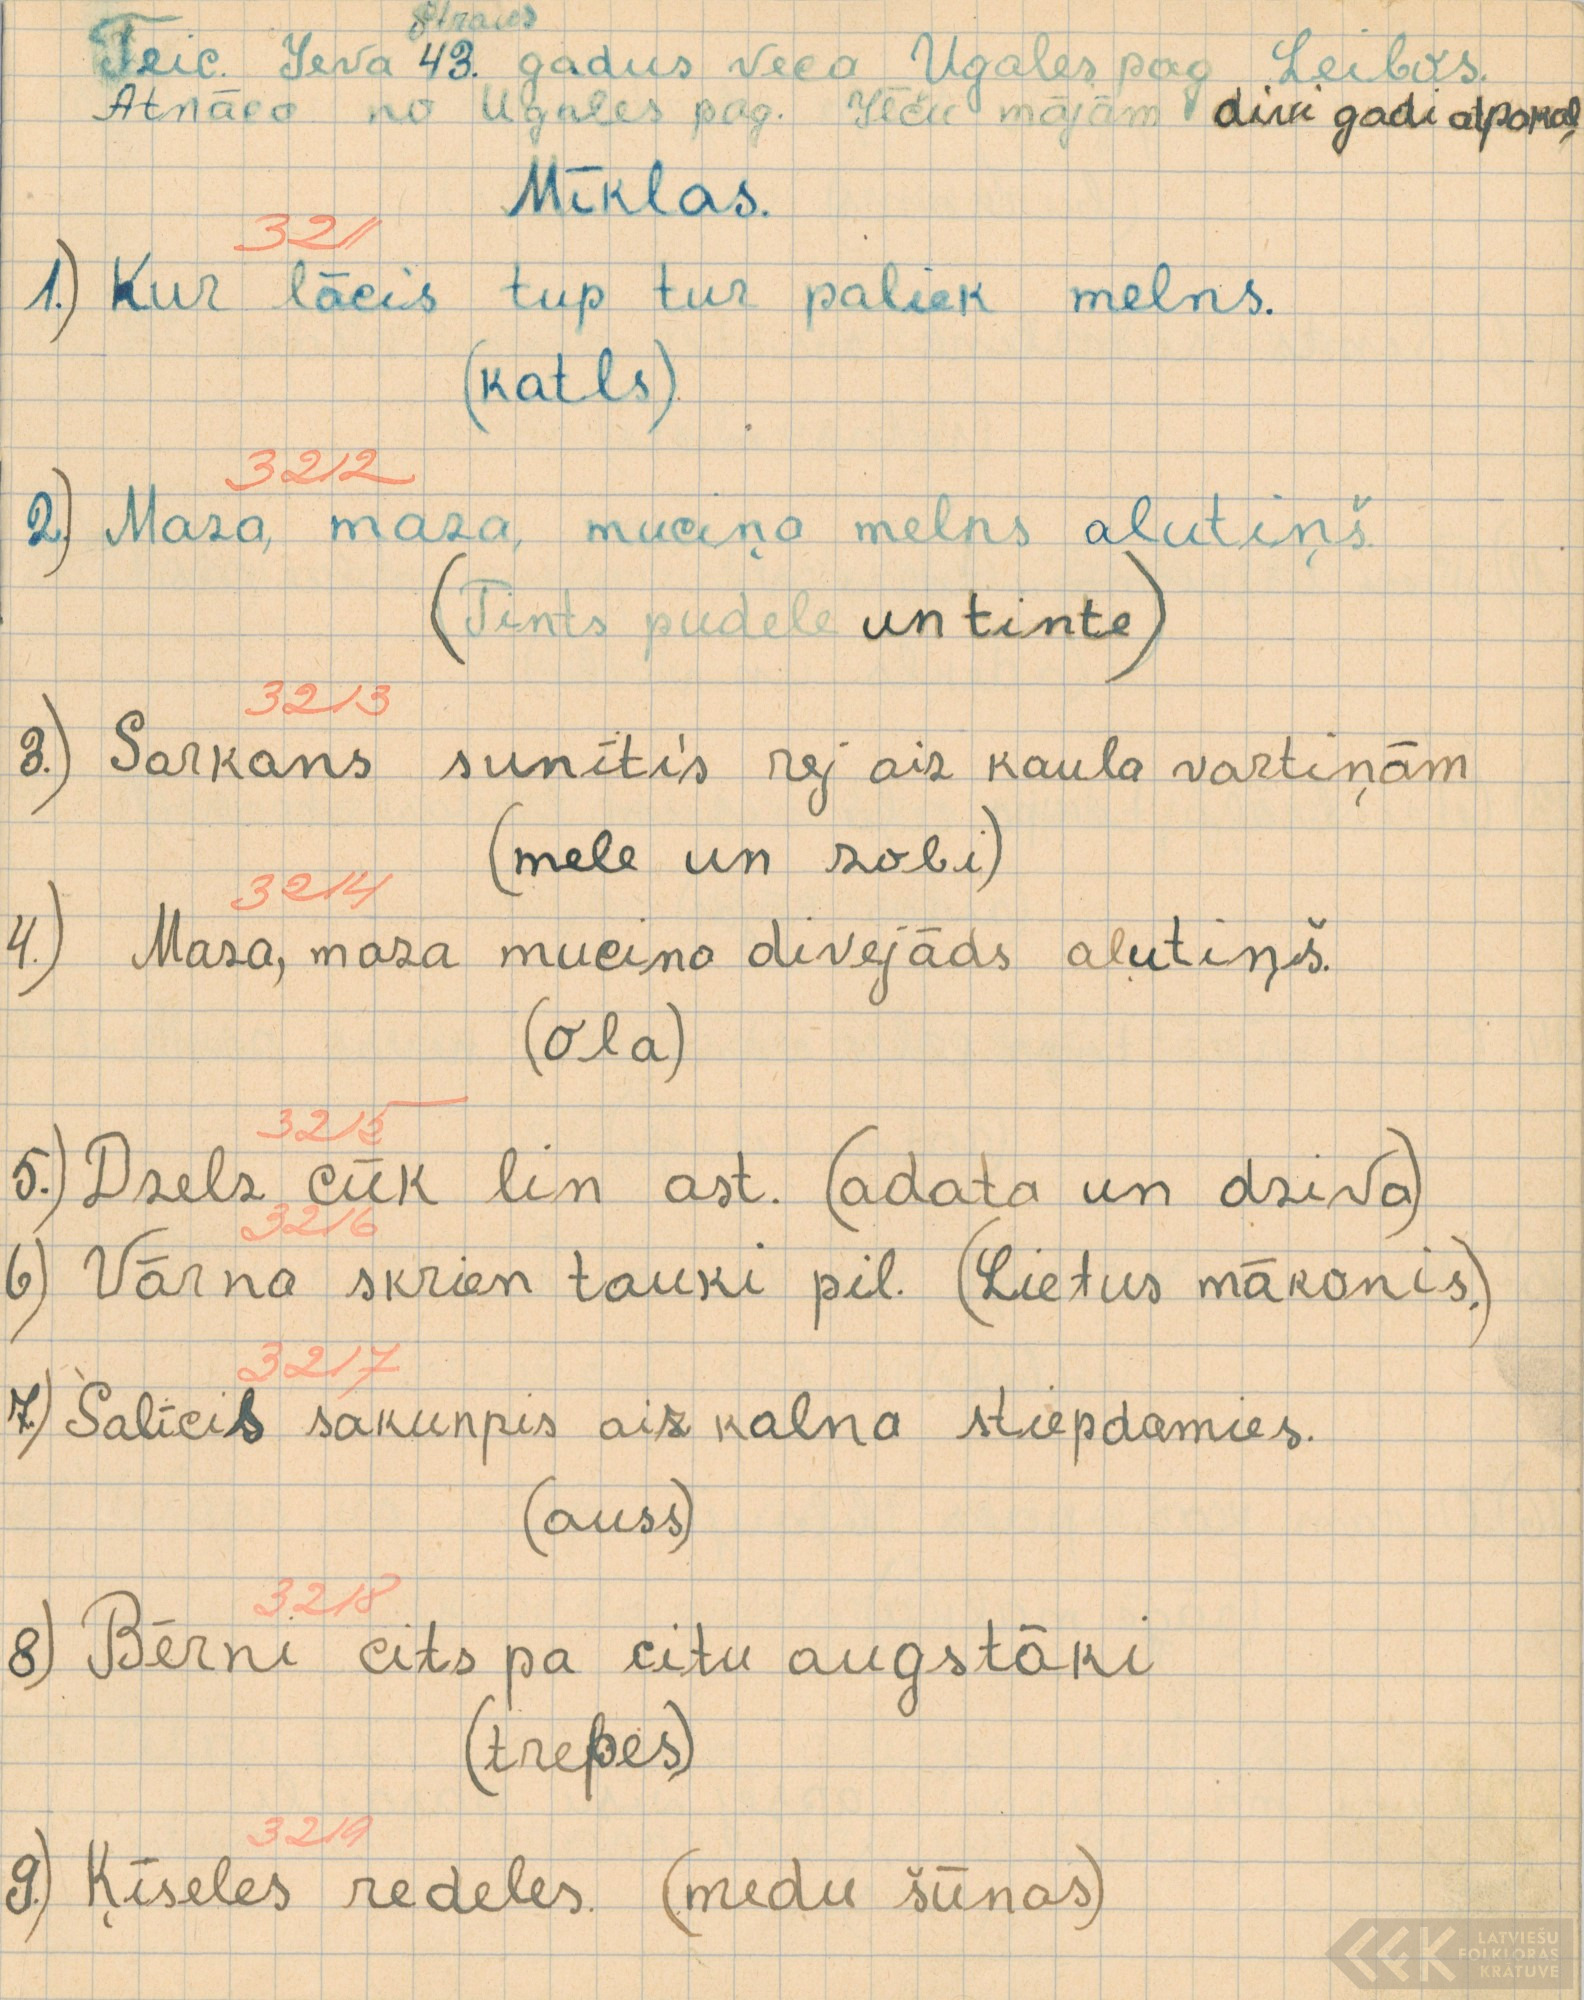 Straus
Teic. Ieva 43. gadus veca Ugales pag Leibos.
Atnāca no Ugales pag. mājām divi gadi atpakaļ
Mīklas.
321
1.) Kur lācis tup tur paliek melns.
(katls)
3212
2.) Maza, maza, muciņa melns alutiņš.
(Tints pudele un tinte)
3213
3.) Sarkans sunītis rej aiz kaula vartiņām
(mele un zobi)
3214
4.) Maza, maza mucina divejāds alutiņš.
(ola)
3215
5.) Dzelz cūk lin ast. (adata un dziva)
3216
6) Vārna skrien tauki pil. (Lietus mākonis.)
3217
7.) Salīcis sakunpis aiz kalna stiepdamies.
(auss)
3218
8) Bērni cits pa citu augstāki
(trepes)
3219
9.) Ķīseles redeles. (medu šūnas)
LATVIEŠU
FOLKLORAS
KRĀTUVE